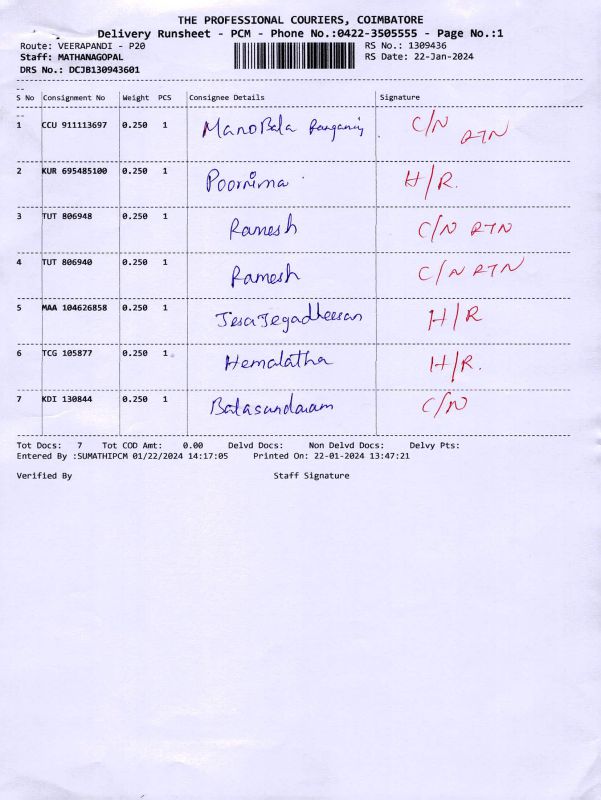 THE PROFESSIONAL COURIERS, COIMBATORE
Delivery Runsheet - PCM - Phone No.:0422-3505555 - Page No.:1
Route: VEERAPANDI - P20 RS No.: 1309436
Staff: MATHANAGOPAL RS Date: 22-Jan-2024
DRS No.: DCJB130943601
S No Consignment No Weight PCS Consignee Details Signature
1 CCU 911113697 0.250 1 ManoBala C/N RTN
2 KUR 695485100 0.250 1 Poornima H/R.
3 TUT 806948 0.250 1 Ramesh C/N RTN
4 TUT 806940 0.250 1 Ramesh C/N RTN
5 MAA 104626858 0.250 1 JesaJegadheesan H/R
6 TCG 105877 0.250 1 Hemalatha H/R.
7 KDI 130844 0.250 1 Balasundaram C/N
Tot Docs: 7 Tot COD Amt: 0.00 Delvd Docs: Non Delvd Docs: Delvy Pts:
Entered By :SUMATHIPCM 01/22/2024 14:17:05 Printed On: 22-01-2024 13:47:21
Verified By Staff Signature